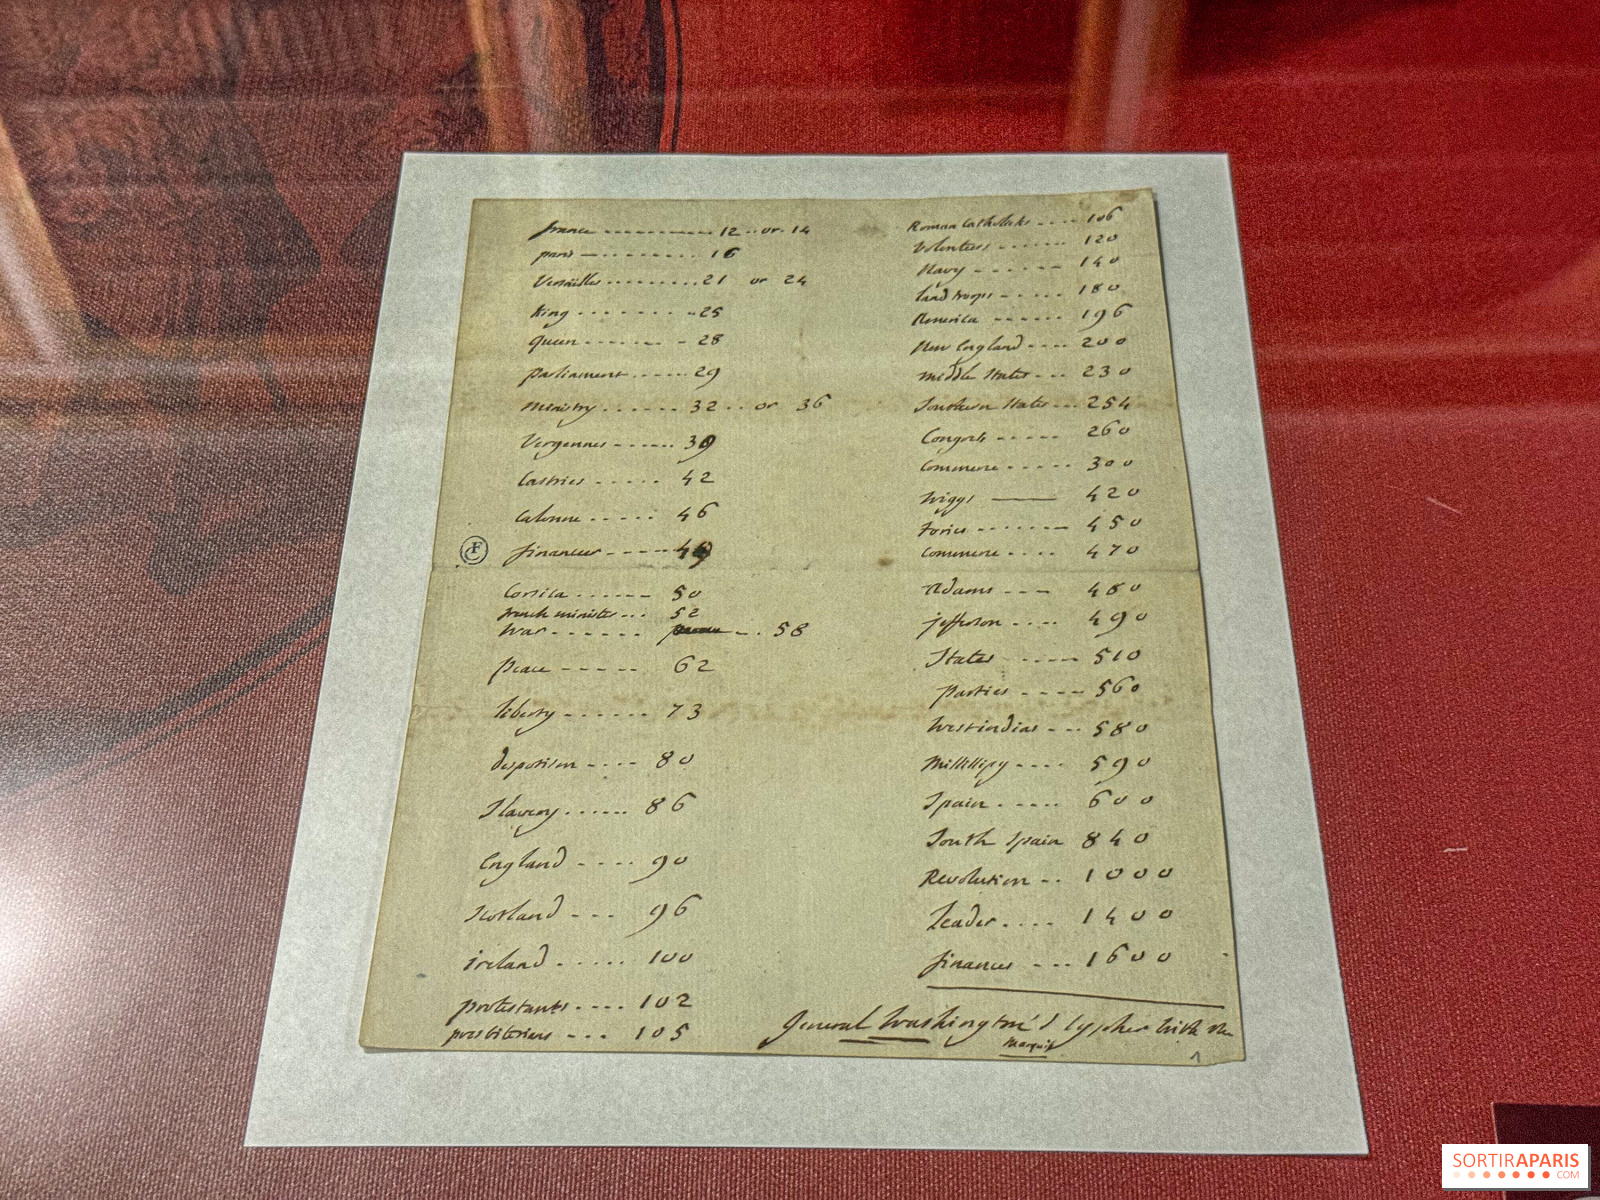 france ------------ 12 .. or. 14
paris --------- 16
Versailles --------- 21 or 24
King -------- 25
queen ------- - 28
parliament ------ 29
Ministry ....... 32 .. or 36
Vergennes ------ 39
Castries ----- 42
Calonne ------ 46
financeer ------
Corsica ------- 50
french minister ... 52
War ------- -. 58
Peace ----- 62
liberty ------ 73
despotism ---- 80
Slavery ...... 86
England ---- 90
Scotland --- 96
ireland ----- 100
protestants ---- 102
presbiterians --- 105
Roman Catholicks ---- 106
Volonteers ------- 120
Navy ------ 140
land troops ----- 180
America ------ 196
New England ---- 200
middle States --- 230
Southern States --- 254
Congress ----- 260
Commerce ----- 300
Wiggs —— 420
Tories ------- 450
Commerce ---- 470
Adams --- 480
jefferson ---- 490
States ----- 510
parties ---- 560
West indias --- 580
Missisipy ---- 590
Spain ----- 600
South Spain 840
Revolution -- 1000
Leader .... 1400
finances --- 1600
General Washington's Cypher with the
Marquis
1
CF
SORTIRAPARIS
.COM